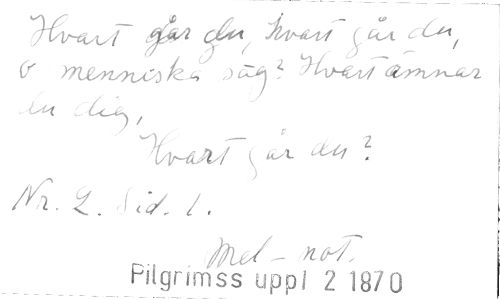 Hvart går du, hvart går du,
o menniska säg? Hvart ämnar
du dig,
Hvart går du?
Nr. 2. Sid. 1.
Mel - not.
Pilgrimss uppl 2 1870